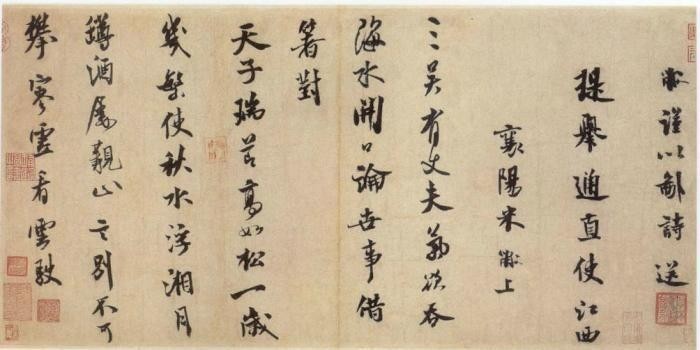 黻謹以鄙詩送
提舉通直使江西
襄陽米黻上
三吳有丈夫氣欲吞
海水開口論世事借
箸對
天子瑞節高如松一歲
幾繁使秋水渟湘月
罇酒屡觀山言別不可
攀寒雲看雲駛